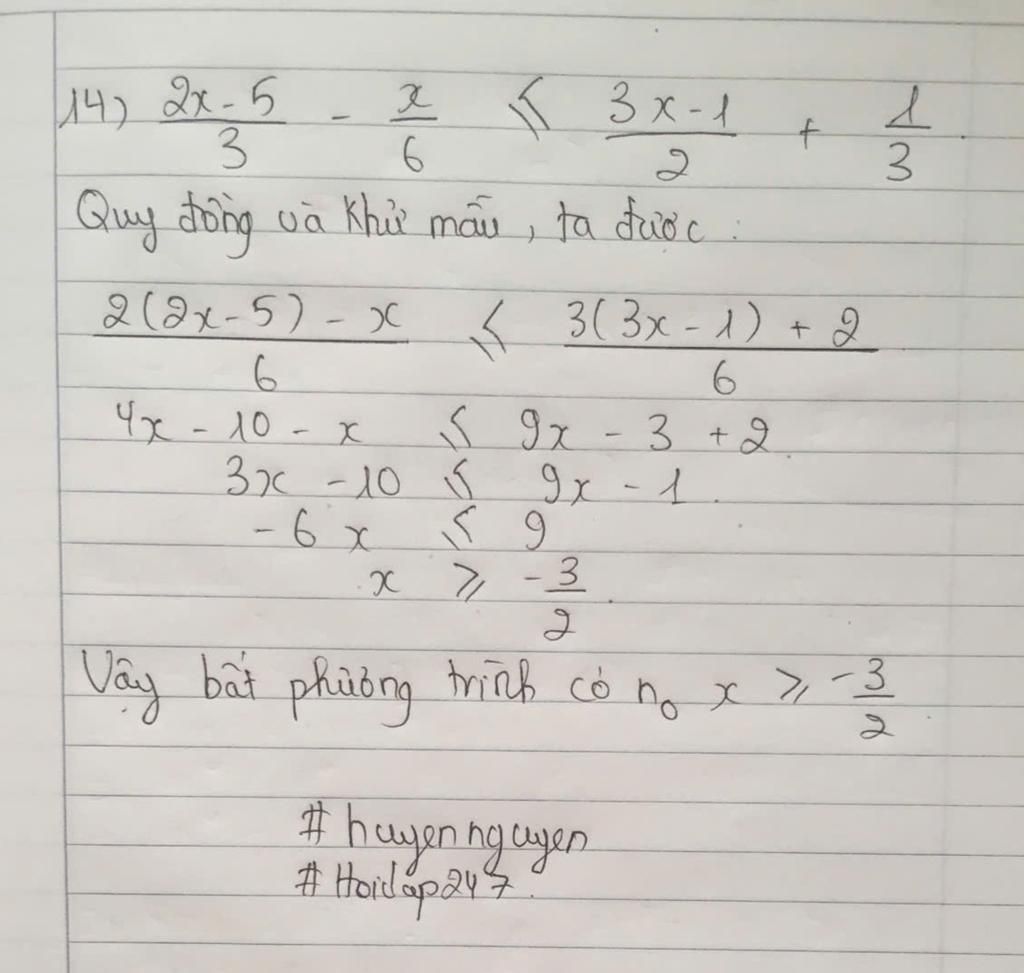 14) (2x - 5)/3 - x/6 ≤ (3x - 1)/2 + 1/3.
Quy đồng và khử mẫu, ta được:
(2(2x - 5) - x)/6 ≤ (3(3x - 1) + 2)/6
4x - 10 - x ≤ 9x - 3 + 2.
3x - 10 ≤ 9x - 1.
-6x ≤ 9
x ≥ -3/2.
Vậy bất phương trình có n₀ x ≥ -3/2.
# huyennguyen
# Hoidap247.